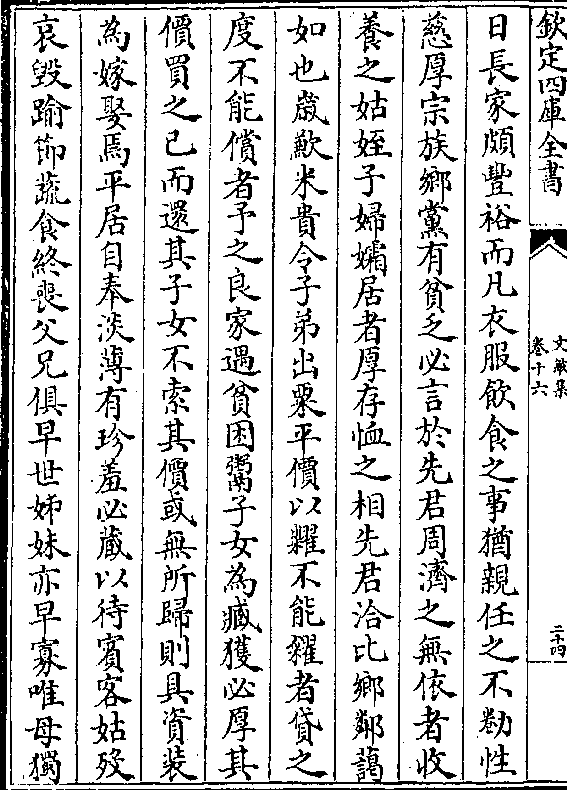 欽定四庫全書
文敏集
卷十六
二十四
日長家頗豐裕而凡衣服飲食之事猶親任之不勌性
慈厚宗族鄉黨有貧乏必言於先君周濟之無依者收
養之姑姪子婦孀居者厚存恤之相先君洽比鄉鄰藹
如也歲歉米貴令子弟出粟平價以糶不能糴者貸之
度不能償者予之良家遇貧困鬻子女為臧獲必厚其
價買之已而還其子女不索其價或無所歸則具資装
為嫁娶焉平居自奉淡薄有珍羞必蔵以待賓客姑歿
哀毀踰節蔬食終喪父兄俱早世姊妹亦早寡唯母獨